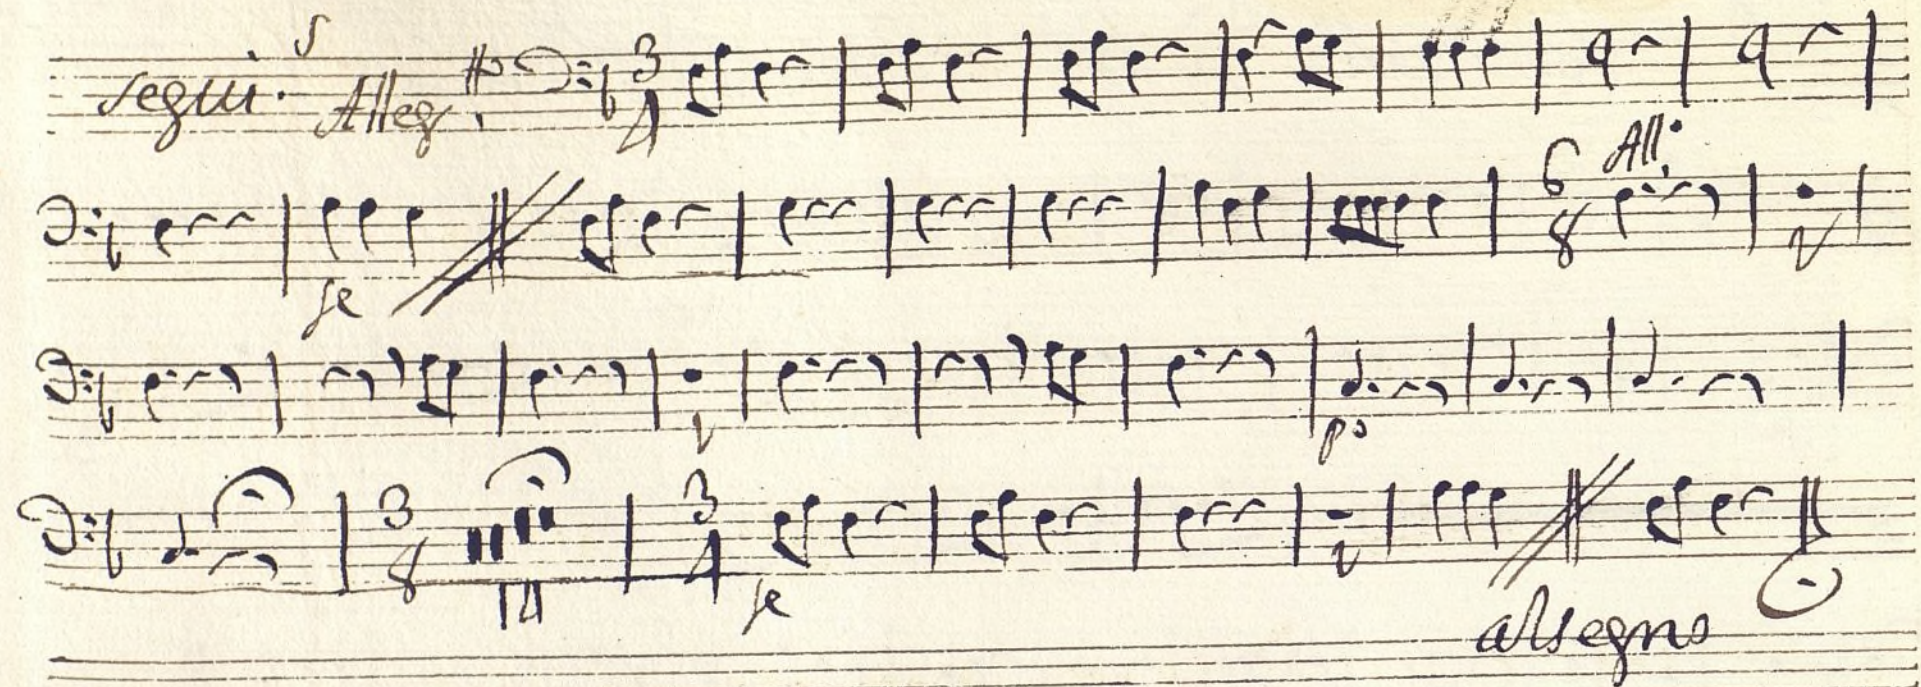 segui. S Alleg 3 4
All. 6 8
fe
po
3 8 14 3 4
fe
al segno